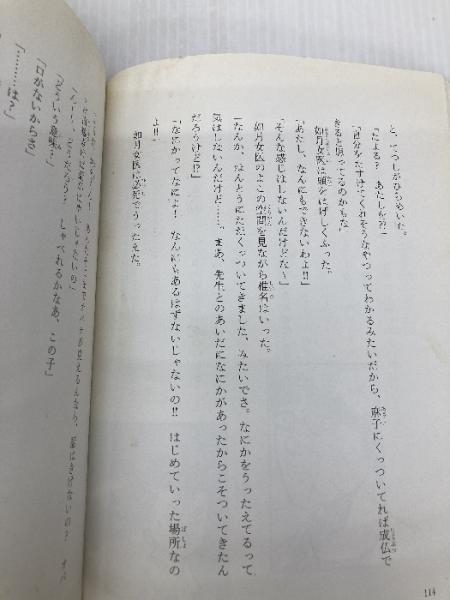 と、てつしがひらめいた。
「たよる？　あたしを？？」
「自分をたすけてくれそうなやつってわかるみたいだから、麻子にくっついてれば成仏で
きると思ってるのかもな」
如月女医は頭をはげしくふった。
「あたし、なんにもできないわよ!!」
「そんな感じはしないんだけどな〜」
如月女医のよこの空間を見ながら椎名はいった。
「なんか、なんとうにただくっついてきました、みたいでさ。なにかをうったえてるって
気はしないんだけど……。まあ、先生とのあいだになにかがあったからこそついてきたん
だろうけど!?」
「なにかってなによ！　なんにもあるはずないじゃないの!!　はじめていった場所なの
よ!!」
如月女医は必死でうったえた。
114
「どういう意味？」
「口がないからさ」
「………は？」
しゃべれるかなあ、この子」